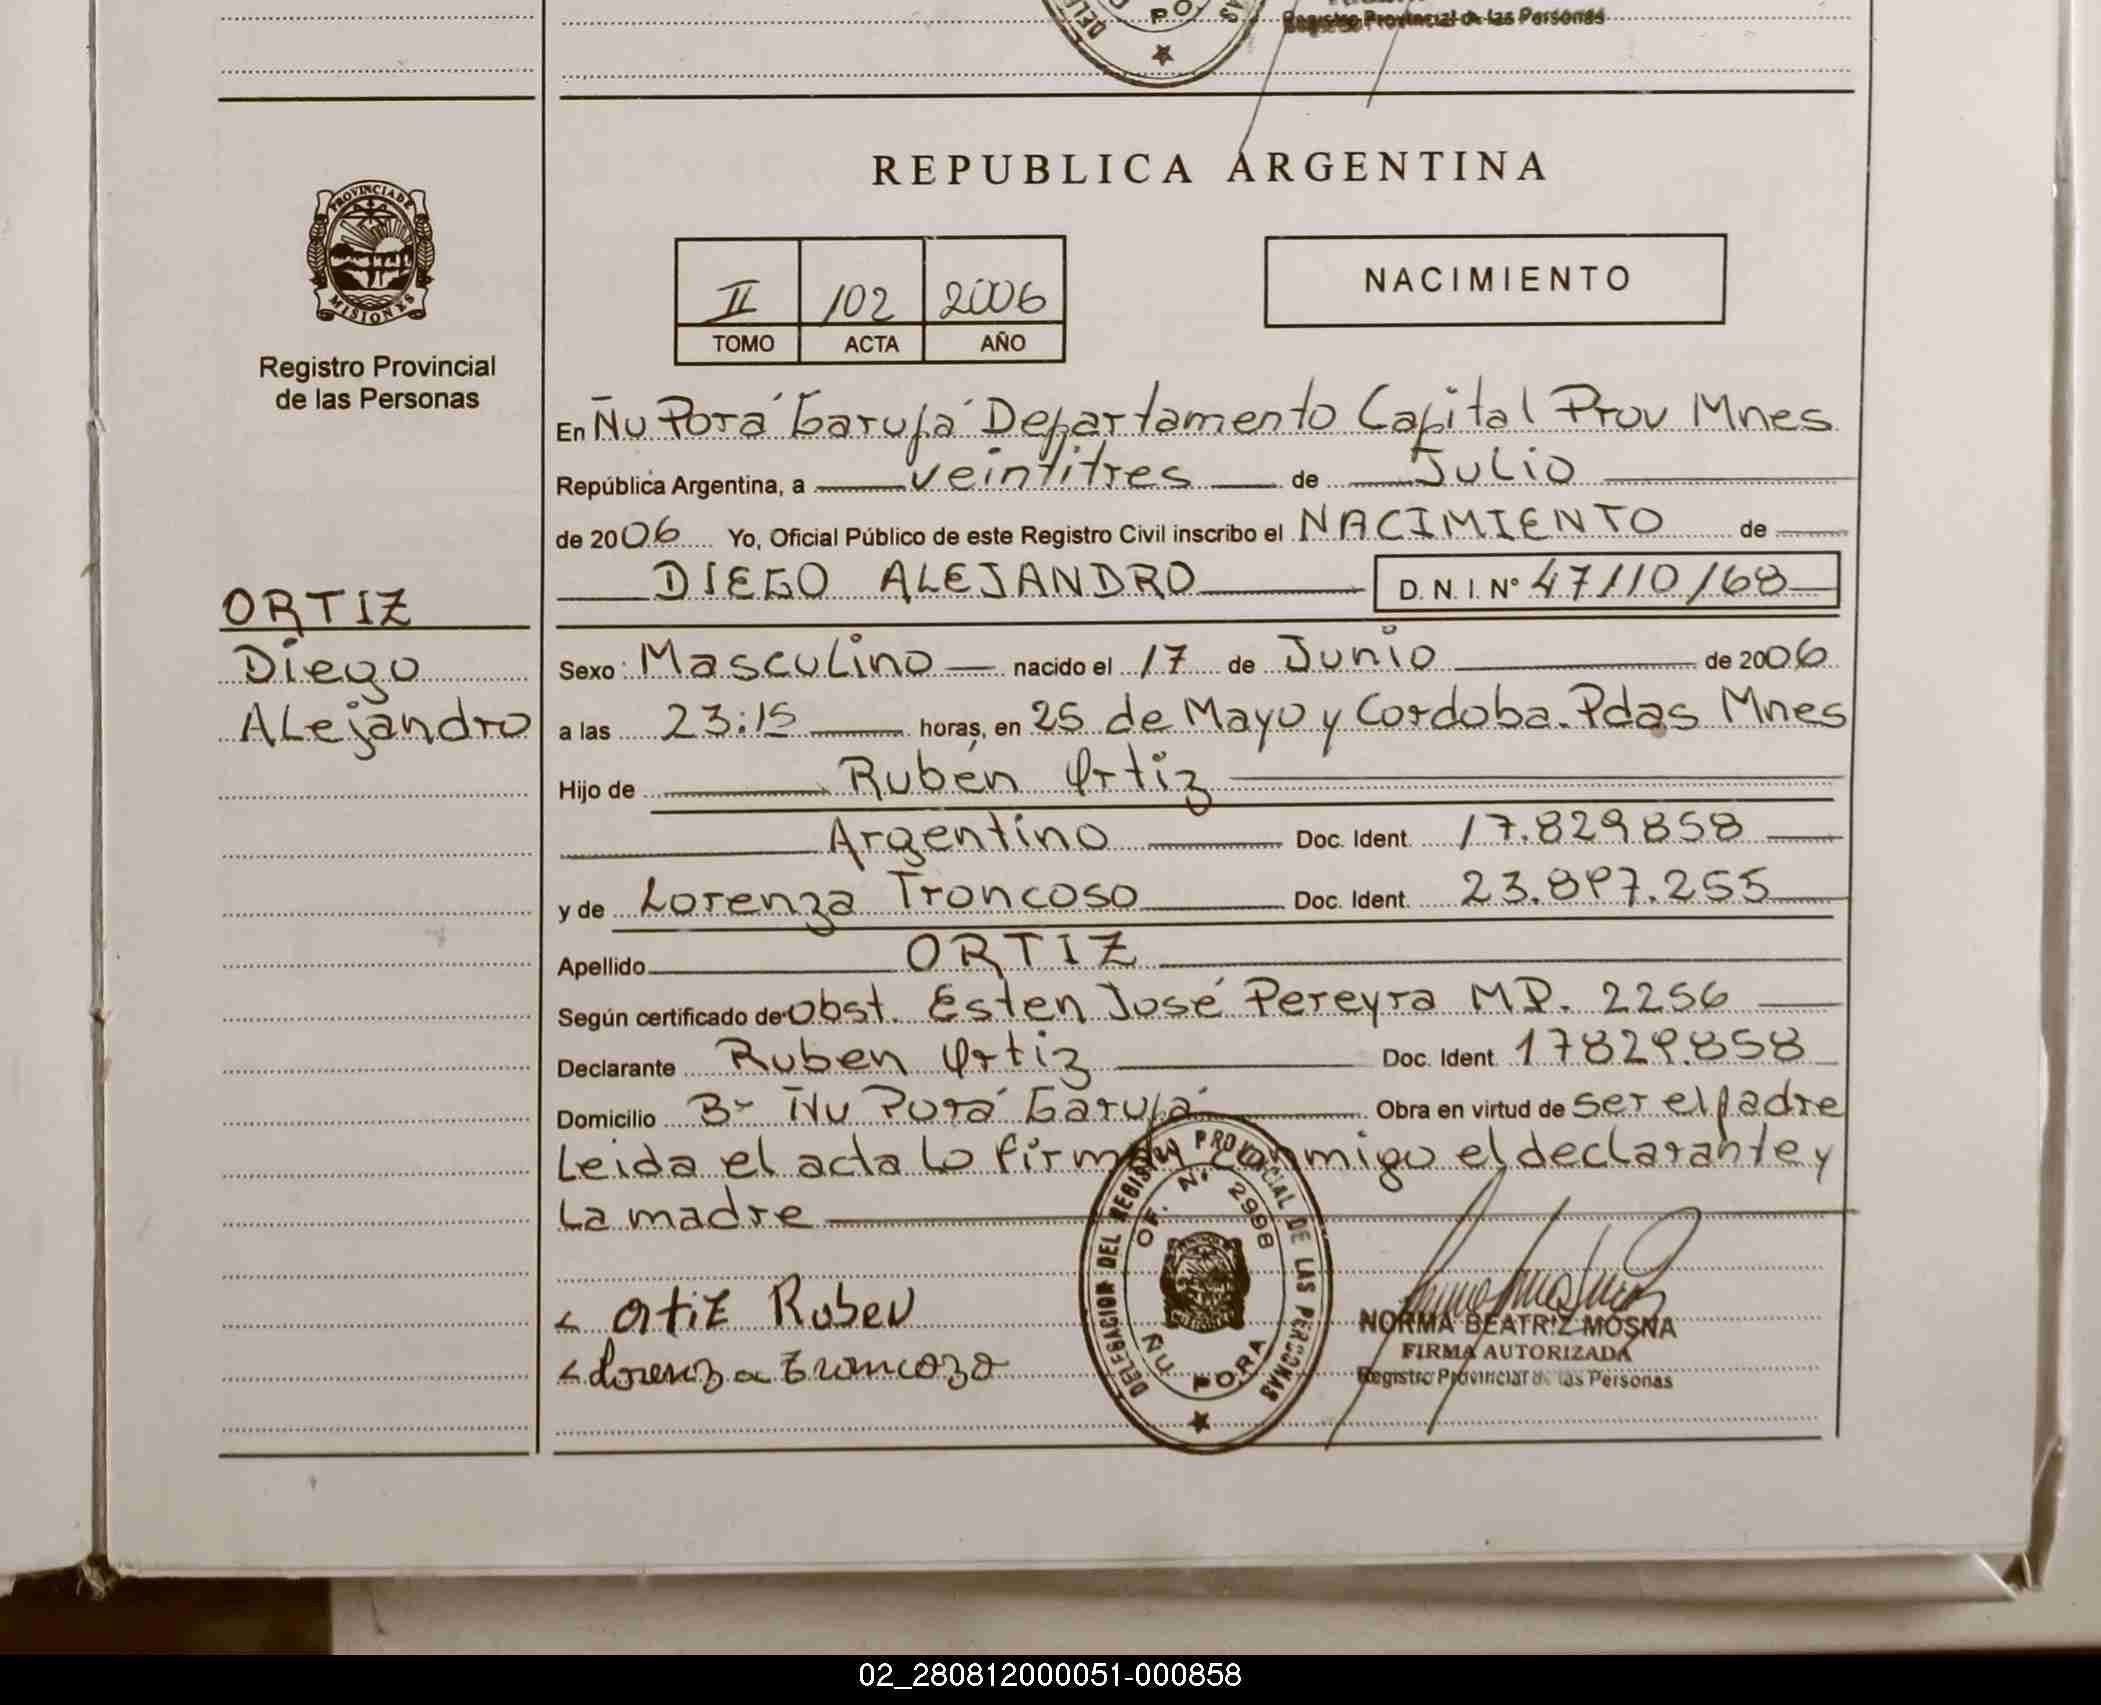 Registro Provincial de las Personas
REPUBLICA ARGENTINA
PROVINCIA DE MISIONES
Registro Provincial
de las Personas
II 102 2006
TOMO ACTA AÑO
NACIMIENTO
En Ñu Porá Garupá Departamento Capital Prov Mnes
República Argentina, a veintitres de Julio
de 2006 Yo, Oficial Público de este Registro Civil inscribo el NACIMIENTO de
DIEGO ALEJANDRO D. N. I. N° 47110168
ORTIZ
Diego
Alejandro
Sexo: Masculino nacido el 17 de Junio de 2006
a las 23:15 horas, en 25 de Mayo y Cordoba. Pdas Mnes
Hijo de Rubén Ortiz
Argentino Doc. Ident. 17.829858
y de Lorenza Troncoso Doc. Ident. 23.897.255
Apellido ORTIZ
Según certificado de Obst. Esten José Pereyra MP. 2256
Declarante Ruben Ortiz Doc. Ident. 17829.858
Domicilio B- Ñu Porá Garupá Obra en virtud de ser el padre
Leida el acta lo firman conmigo el declarante y
La madre
DELEGACION DEL REGISTRO PROVINCIAL DE LAS PERSONAS
OF. N° 2998
ÑU PORA
Ortiz Ruben
Lorenza Troncozo
NORMA BEATRIZ MOSNA
FIRMA AUTORIZADA
Registro Provincial de las Personas
02_280812000051-000858